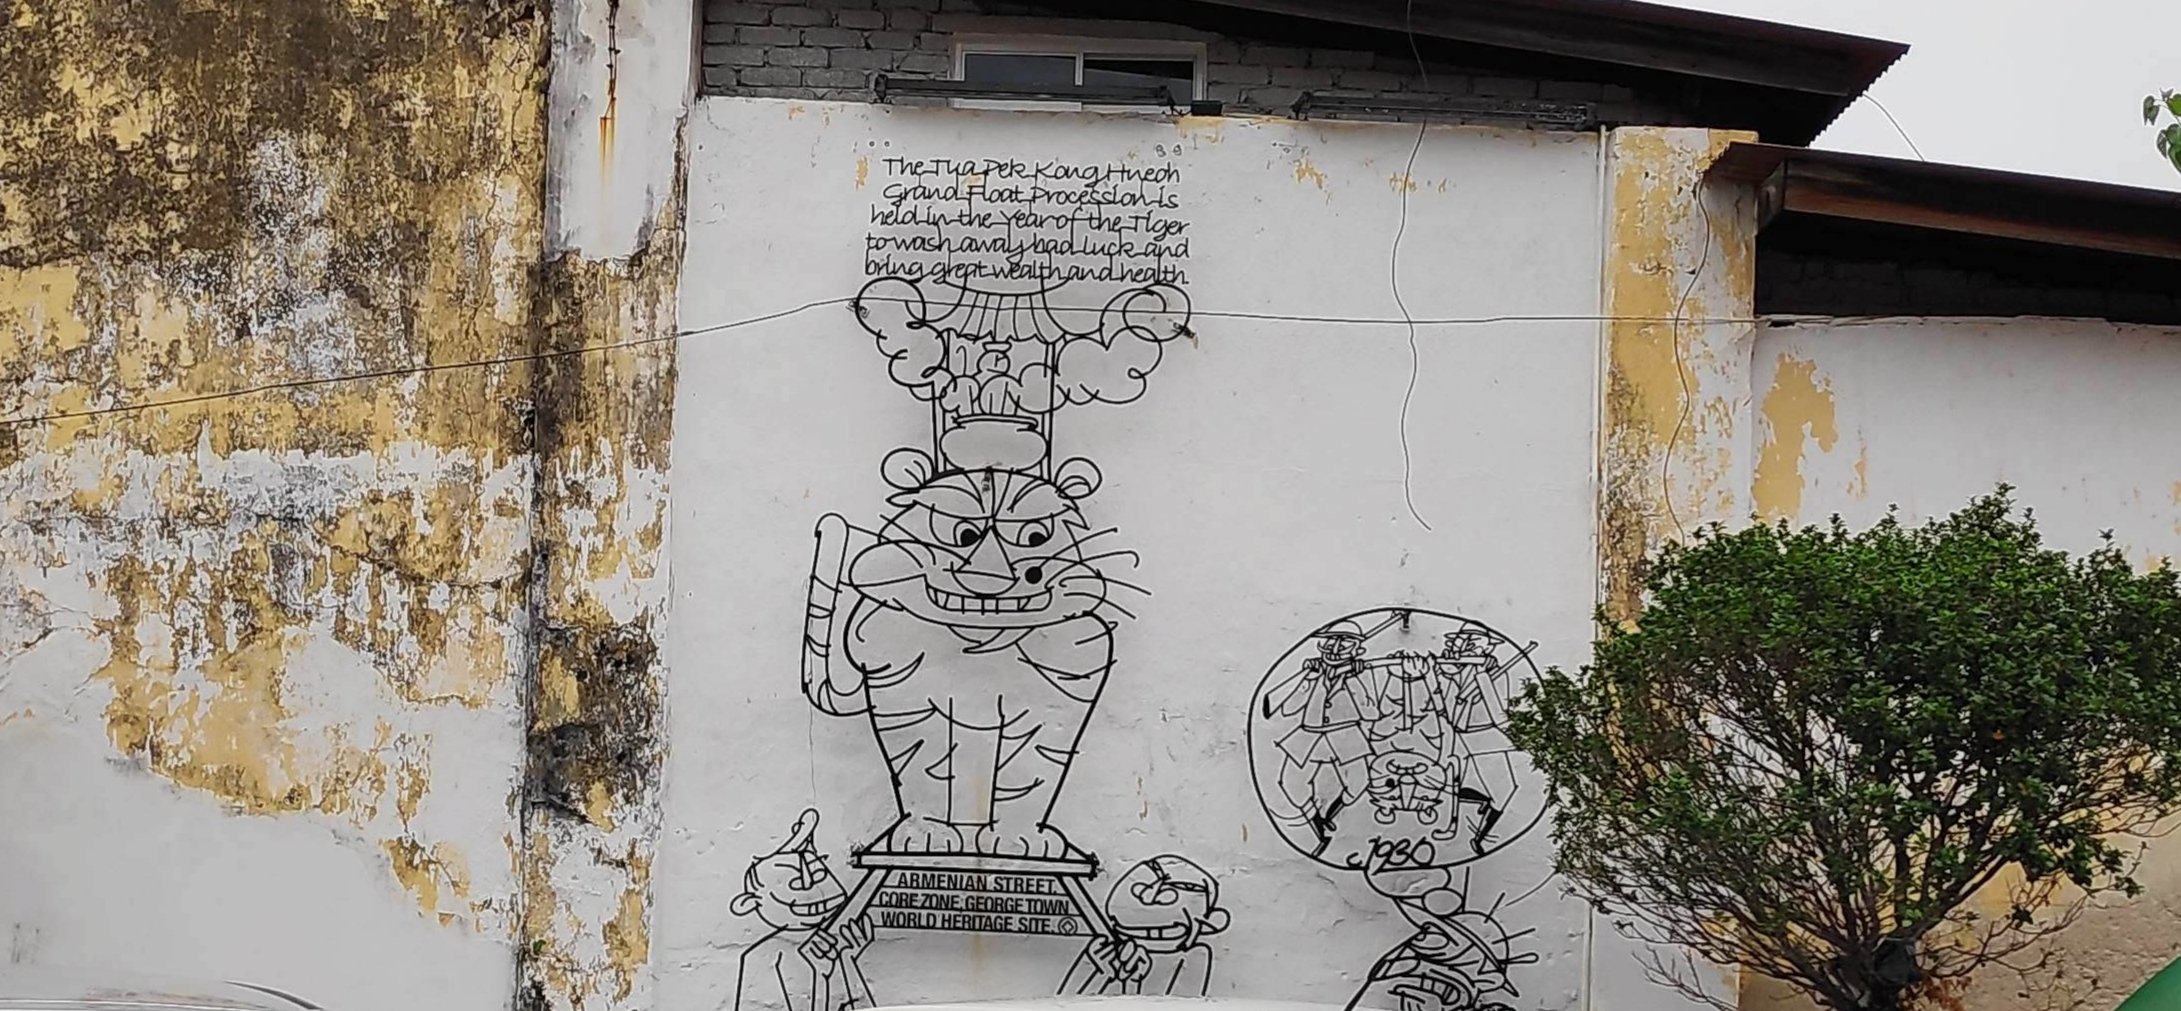 The Tua Pek Kong Hneoh
Grand Float Procession is
held in the Year of the Tiger
to wash away bad luck and
bring great wealth and health.
ARMENIAN STREET,
CORE ZONE, GEORGE TOWN
WORLD HERITAGE SITE.
c.1930